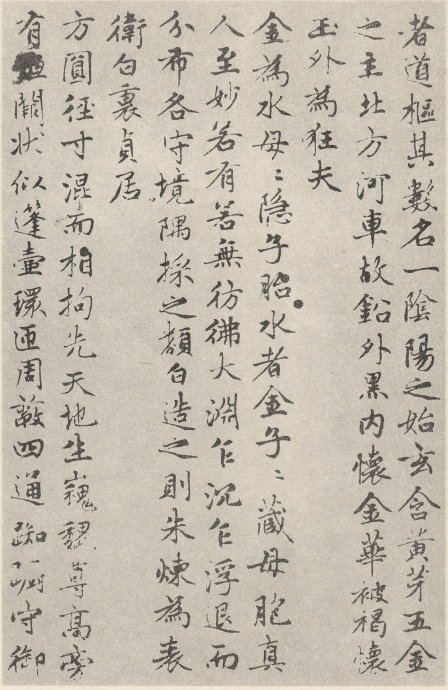 者道樞其數名一陰陽之始玄含黃芽五金
之主北方河車故鉛外黑内懷金華被褐懷
玉外為狂夫
金為水母〻隱子胎水者金子〻藏母胞真
人至妙若有若無彷彿大淵乍沉乍浮退而
分布各守境隅採之類白造之則朱煉為表
衛白裏貞居
方圓徑寸混而相拘先天地生巍魏尊高旁
有垣闕狀似蓬壺環匝周四通踟蹰守御